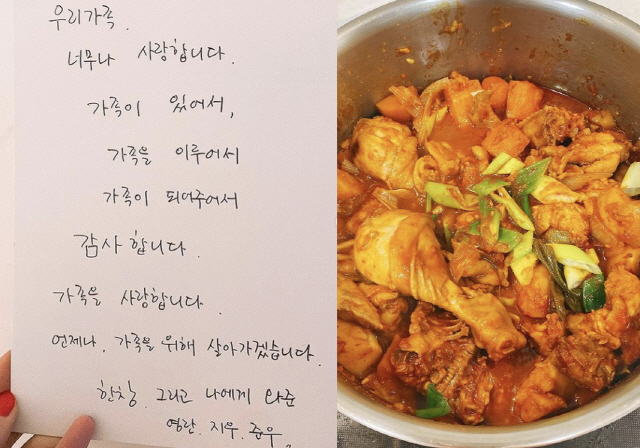 우리가족.
너무나 사랑합니다.
가족이 있어서,
가족을 이루어서
가족이 되어주어서
감사합니다.
가족을 사랑합니다.
언제나. 가족을 위해 살아가겠습니다.
한창. 그리고 나에게 와준
영란. 지우. 준우.